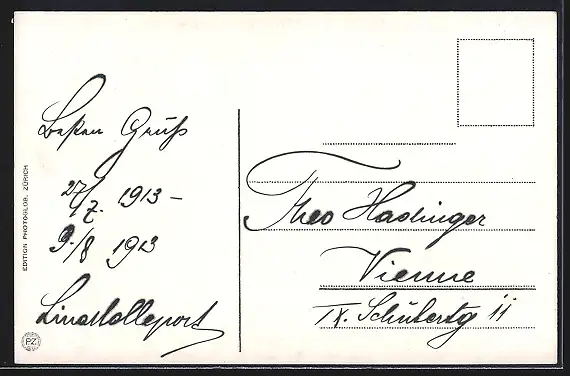 Besten Gruß
27/7. 1913 –
9./8 1913
EDITION PHOTOGLOB, ZÜRICH
PZ
Theo Hadinger
Vienne
IX. Schubertg 11